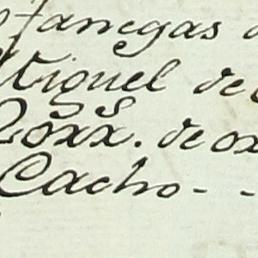 fanegas d
Miguel de
Roxx. de ox
Cacho - -